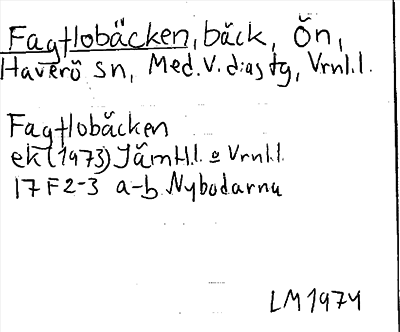 Fagtlobäcken, bäck, Ön,
Haverö sn, Med. V. diastg, Vrnl.l.
Fagtlobäcken
ek (1973) Jämtl.l. o Vrnl.l.
17 F 2-3 a-b Nybodarna
LM 1974